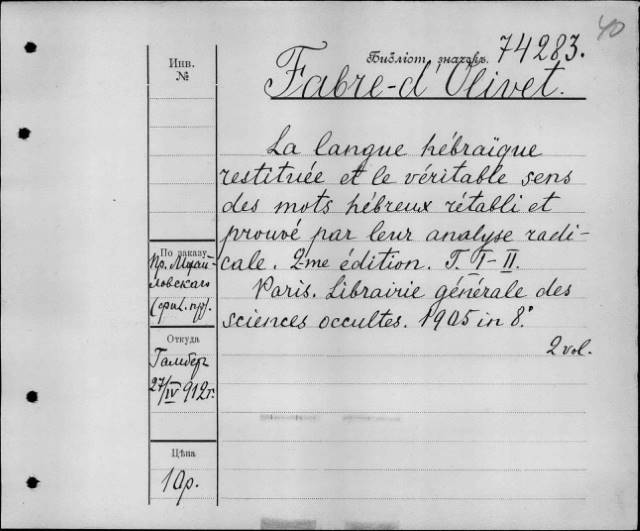 40
Библіот. значокъ. 74283.
Fabre-d'Olivet.
Инв.
№
La langue hébraïque
restituée et le véritable sens
des mots hébreux rétabli et
prouvé par leur analyse radi-
cale. 2me édition. T. I-II.
Paris. Librairie générale des
sciences occultes. 1905 in 8°
2 vol.
По заказу
Пр. Михай-
ловскаго
Откуда
Гамбер
27/IV 912 г.
Цѣна
10р.